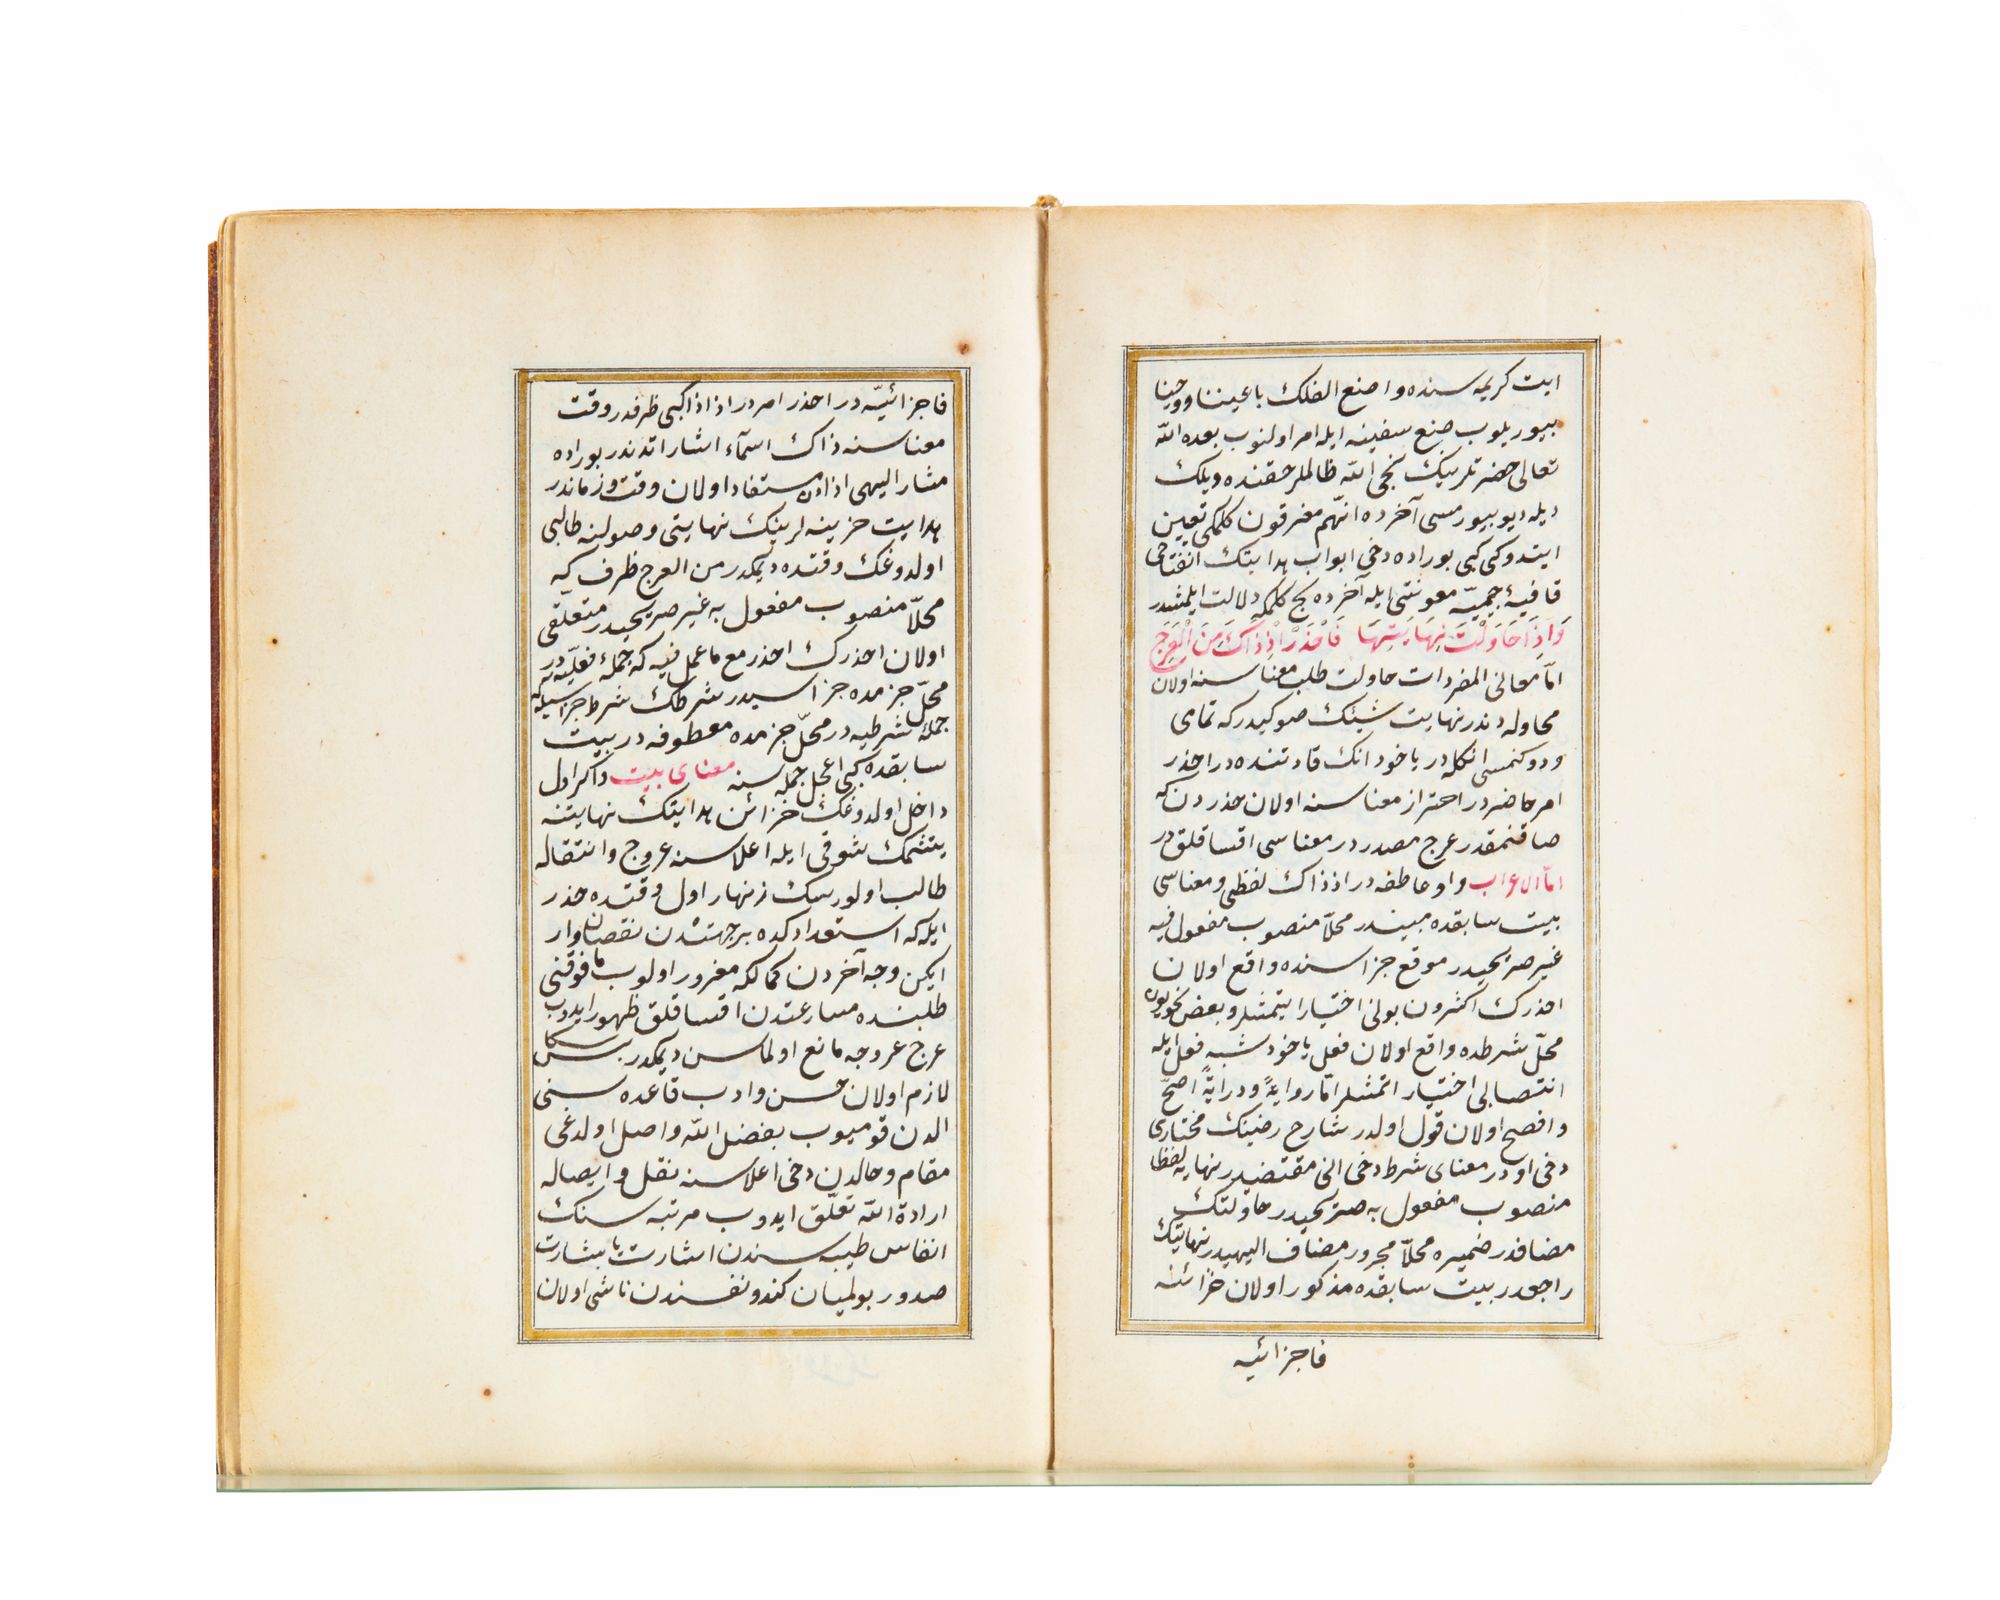 ايت كريمه سنده واصنع الفلك باعيننا ووحينا
بيوريلوب صنع سفينه ايله امر اولنوب بعده الله
تعالى حضرتلرينك نجى الله ظالملر حقنده ديلك
ديله ديو بيورمسى آخرده انهم مغرقون كلمكى تعيين
ايتدوكى كبى بوراده دخى ابواب هدايتك انفتاحى
قافيۀ جيميّه معونتى ايله آخرده كلمكه دلالت ايلمشدر
وَاِذَا حَاوَلْتَ نِهَايَتِهَا فَاحْذَرْ اِذْ ذَاكَ مِنَ الْعَرَجِ
امّا معانى المفردات حاولت طلب معناسنه اولان
محاوله دندر نهايت شيئك صوكيدر كه تماى
ودوكنمسى انكله در ياخود انك قاتنده در احذر
امر حاضردر احتراز معناسنه اولان حذردن كه
صاقنمقدر عرج مصدردر معناسى اقساقلق در
امّا الاعراب واو عاطفه در اذ ذاك لفظى ومعناسى
بيت سابقده مبيندر محلّا منصوب مفعول فيه
غير صريحيدر موقع جزاسنده واقع اولان
احذرك اكثرون بونى اختيار ايتمشلر وبعض نحويون
محلّ شرطده واقع اولان فعل ياخود شبه فعل ايله
انتصابى اختيار اتمشلر امّا روايةً ودرايةً اصحّ
وافصح اولان قول اولدر شارح رضينك مختارى
دخى اودر معناى شرط دخى انى مقتضيدر نهايه لفظا
منصوب مفعول به صريحيدر حاولتك
مضافدر ضميره محلّا مجرور مضاف اليهيدر نهايتك
راجعدر بيت سابقده مذكور اولان خزائنه
فاجزائيه
فاجزائيّه در احذر امردر اذ اذا كبى ظرفدر وقت
معناسنه ذاك اسمآء اشاراتدندر بوراده
مشار اليهى اذادن مستفاد اولان وقت وزماندر
هدايت خزينه لرينك نهايتى وصولنه طالبى
اولدوغك وقتده ديمكدر من العرج ظرف كه
محلّا منصوب مفعول به غير صريحيدر متعلقى
اولان احذرك احذر مع ما عمل فيه كه جملۀ فعليّه در
محلّ جزمده جزاسيدر شرطك شرط جزاسيله
جملۀ شرطيه در محلّ جزمده معطوفه در بيت
سابقده كبى اعجل جمله سنه معناى بيت داكر اول
داخل اولدوغك خزائن هدايتك نهايتنه
يتشمك شوقى ايله اعلاسنه عروج وانتقاله
طالب اولورسك زنهار اول وقتده حذر
ايله كه استعدادكده بر جهتدن نقصان وار
ايكن وجه آخردن كمالكه مغرور اولوب ما فوقنى
طلبنده مسارعتدن اقساقلق ظهور ايدوب
عرج عروجه مانع اولماسن ديمكدر بس سكا
لازم اولان حسن وادب قاعده سنى
الدن قوميوب بفضل الله واصل اولدغى
مقام وحالدن دخى اعلاسنه نقل وايصاله
ارادة الله تعلّق ايدوب مرتبه سنك
انفاس طيبه سندن اشارت با بشارت
صدور بولميان كندو نفسندن ناشى اولان